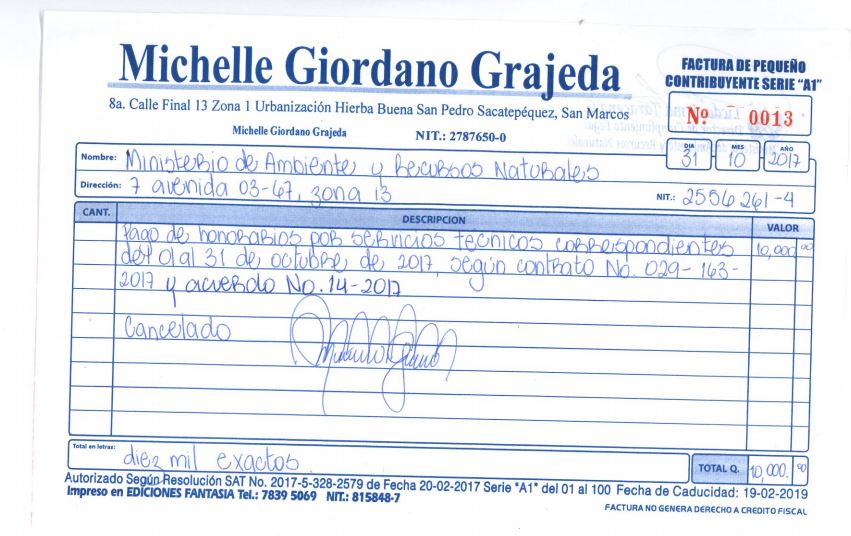 Michelle Giordano Grajeda
8a. Calle Final 13 Zona 1 Urbanización Hierba Buena San Pedro Sacatepéquez, San Marcos
Michelle Giordano Grajeda NIT.: 2787650-0
FACTURA DE PEQUEÑO
CONTRIBUYENTE SERIE "A1"
Nº 0013
DIA MES AÑO
31 10 2017
Nombre: Ministerio de Ambiente y Recursos Naturales
Dirección: 7 avenida 03-67, zona 13 NIT.: 2556261-4
CANT. DESCRIPCION VALOR
Pago de honorarios por servicios tecnicos correspondientes 10,000 00
del 01 al 31 de octubre de 2017, según contrato No. 029-163-
2017 y acuerdo No. 14-2017
Cancelado
Total en letras: diez mil exactos. TOTAL Q. 10,000. 00
Autorizado Según Resolución SAT No. 2017-5-328-2579 de Fecha 20-02-2017 Serie "A1" del 01 al 100 Fecha de Caducidad: 19-02-2019
Impreso en EDICIONES FANTASIA Tel.: 7839 5069 NIT.: 815848-7
FACTURA NO GENERA DERECHO A CREDITO FISCAL